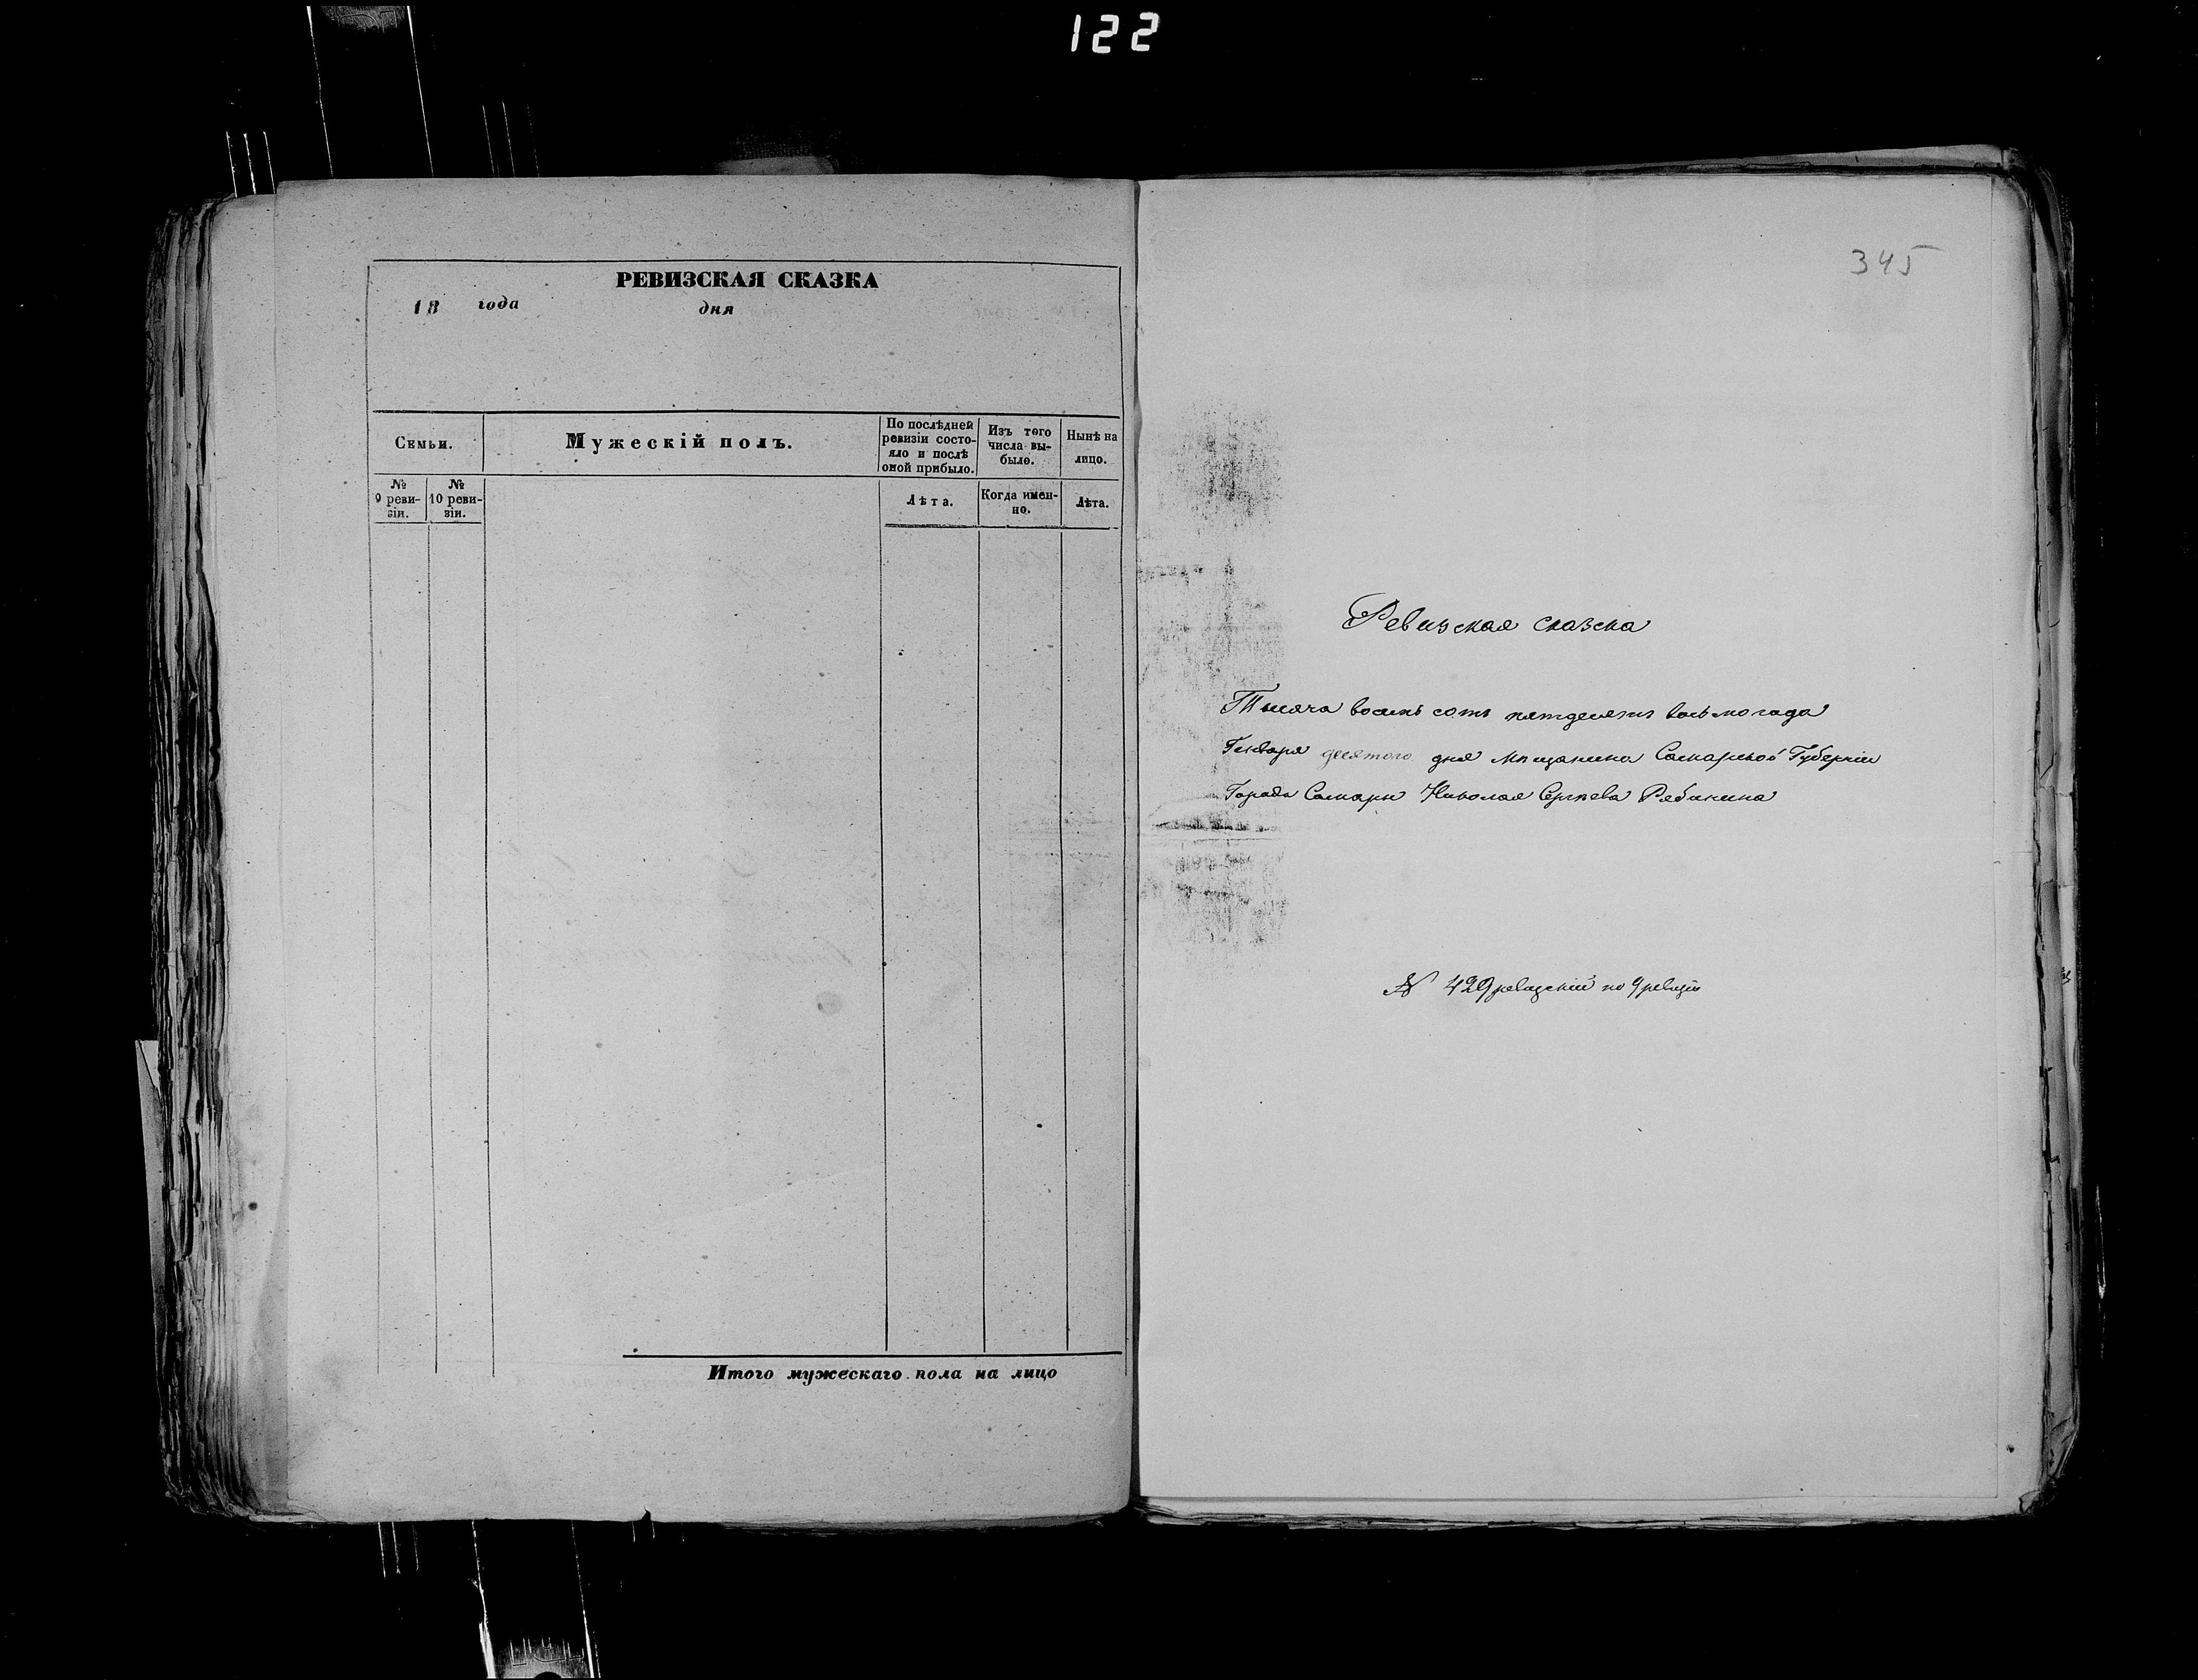 122
РЕВИЗСКАЯ СКАЗКА
18 года дня
Семьи.
Мужескій полъ.
По послѣдней ревизіи состо-
яло и послѣ
оной прибыло.
Изъ того
числа вы-
было.
Нынѣ на
лицо.
№
9 реви-
зіи.
№
10 реви-
зіи.
Лѣта.
Когда имен-
но.
Лѣта.
Итого мужескаго пола на лицо
345
Ревизская сказка
Тысяча восемь сотъ пятдесятъ восьмого года
Генваря десятого дня мѣщанина Самарской Губерніи
Города Самары Николая Сергѣева Рябинина
№ 429 ревизскій по 9 ревизіи